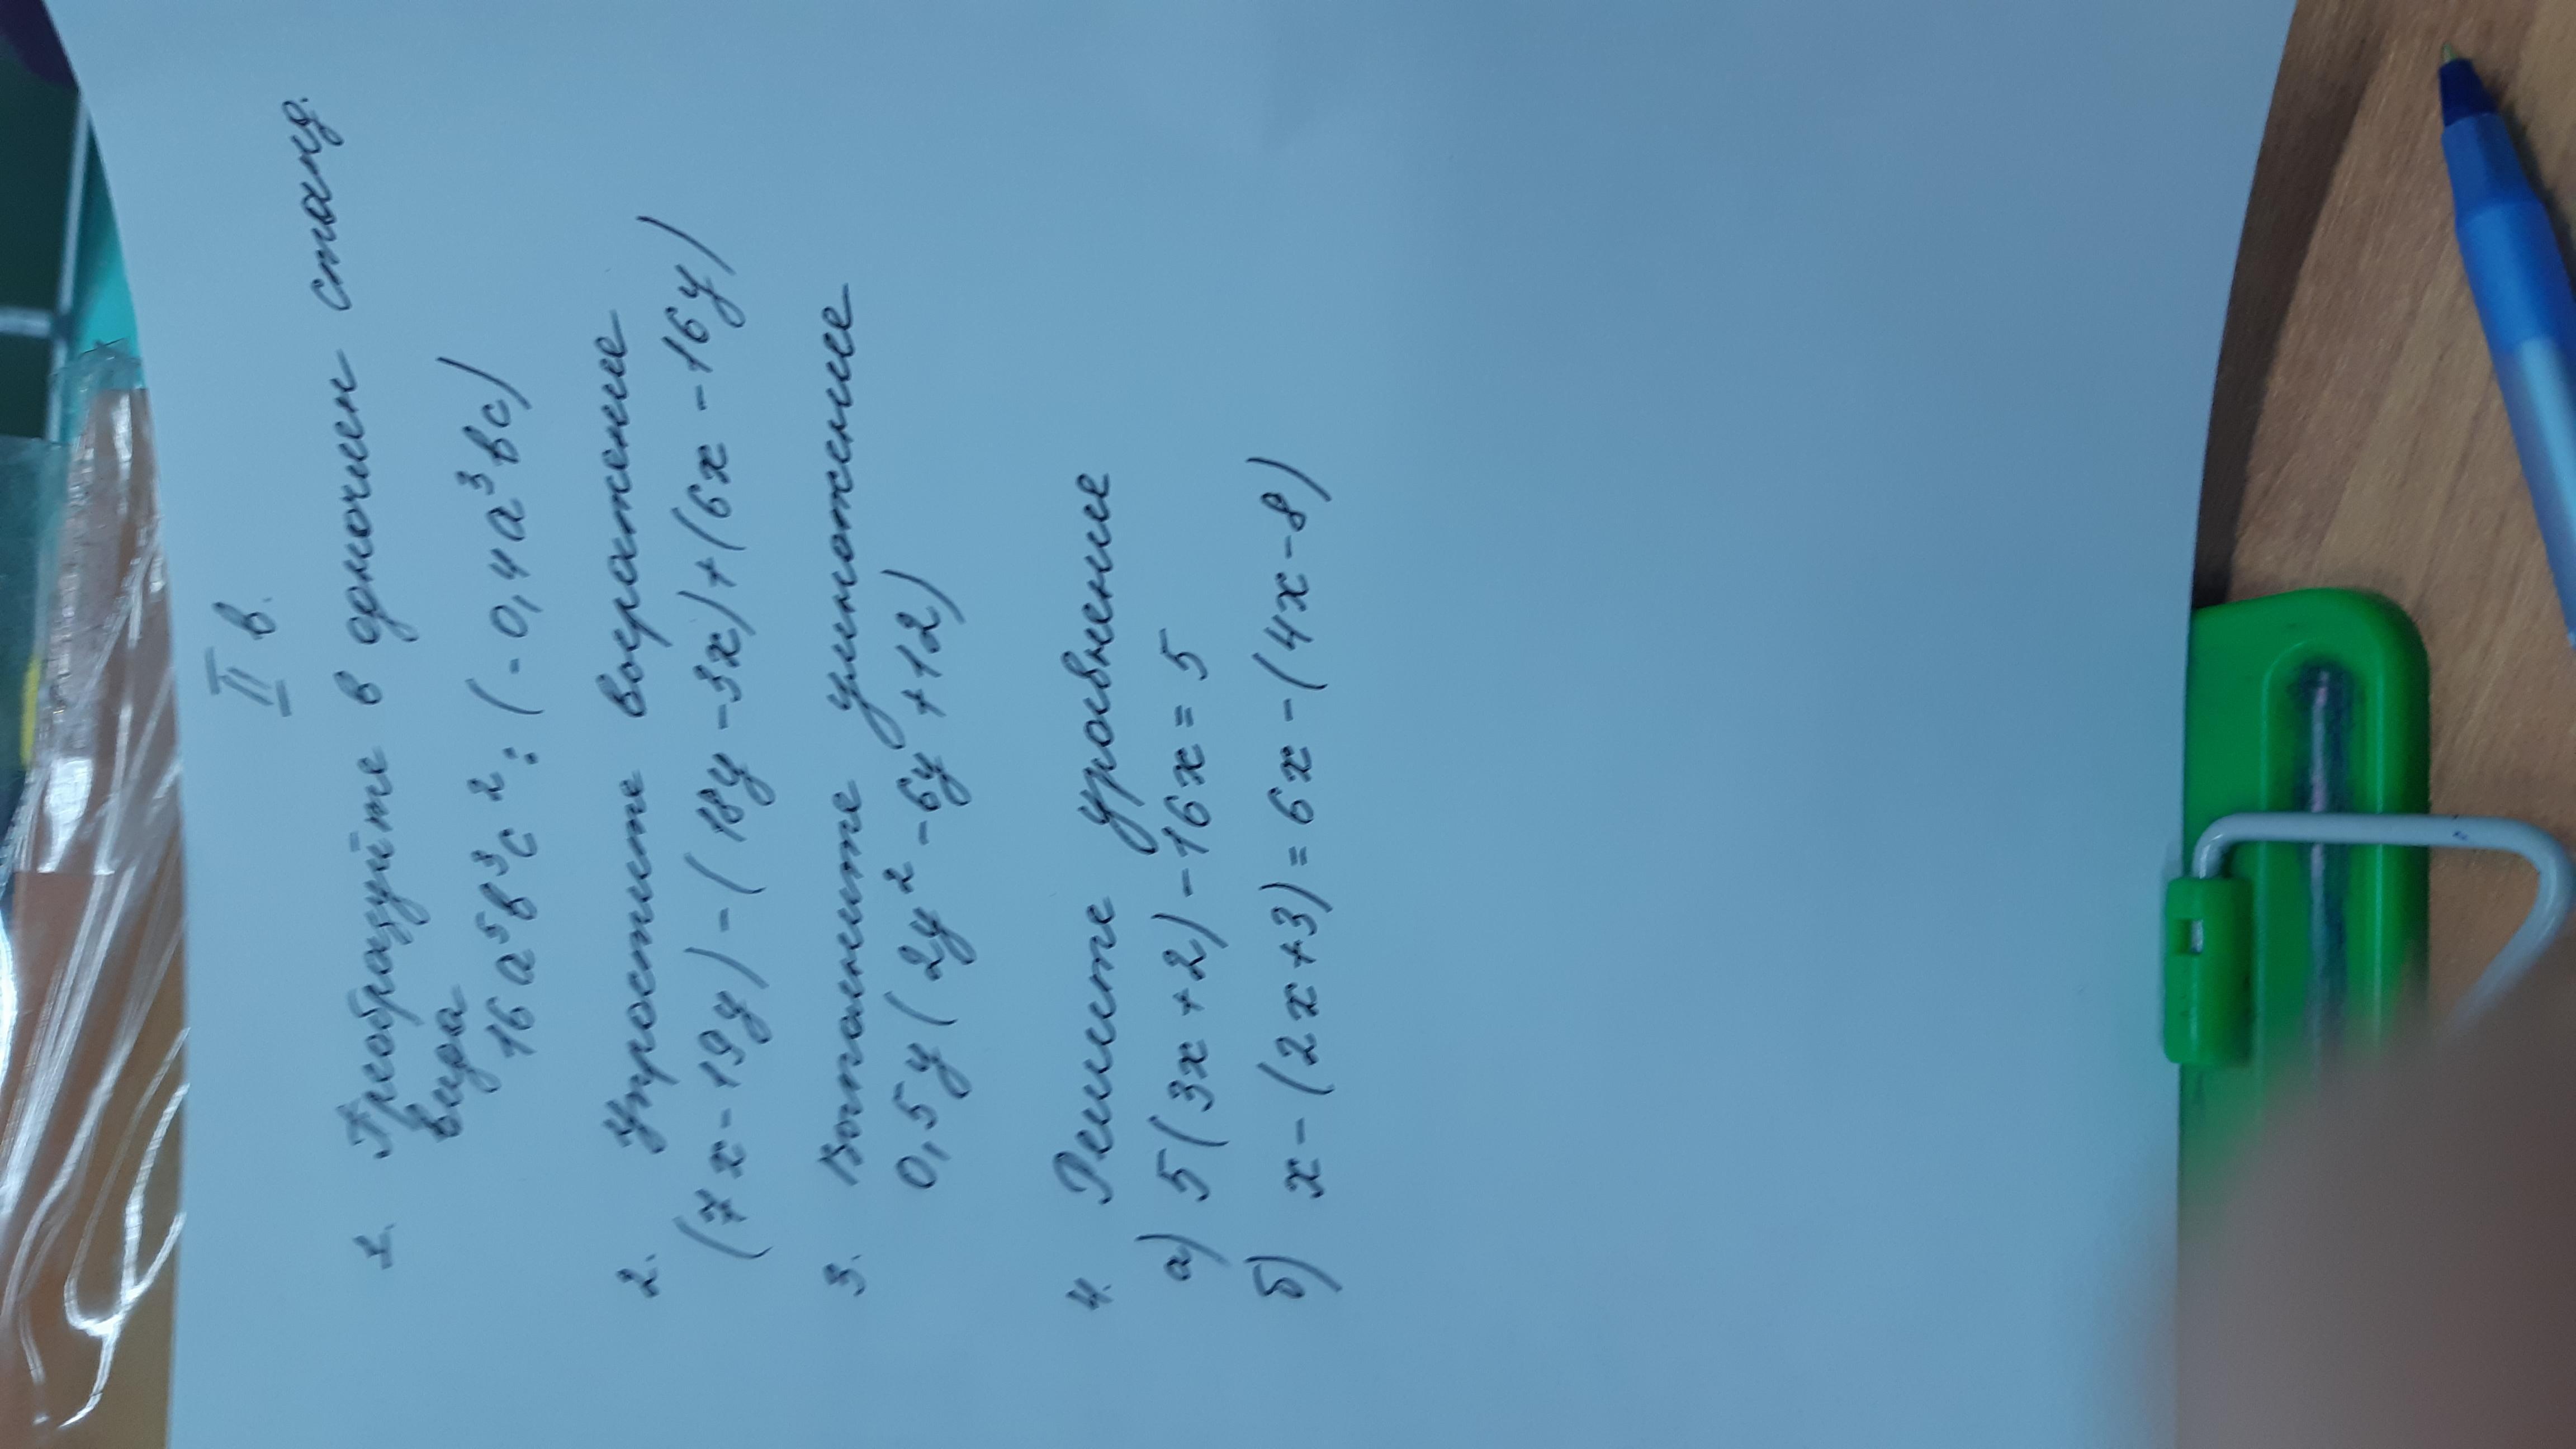 II в.
1. Преобразуйте в одночлен станд.
вида
16 a⁵b³c² : (-0,4a³bc)
2. Упростите выражение
(7x-19y)-(18y-3x)+(6x-16y)
3. Выполните умножение
0,5y(2y²-6y+12)
4. Решите уравнение
а) 5(3x+2)-16x=5
б) x-(2x+3)=6x-(4x-8)